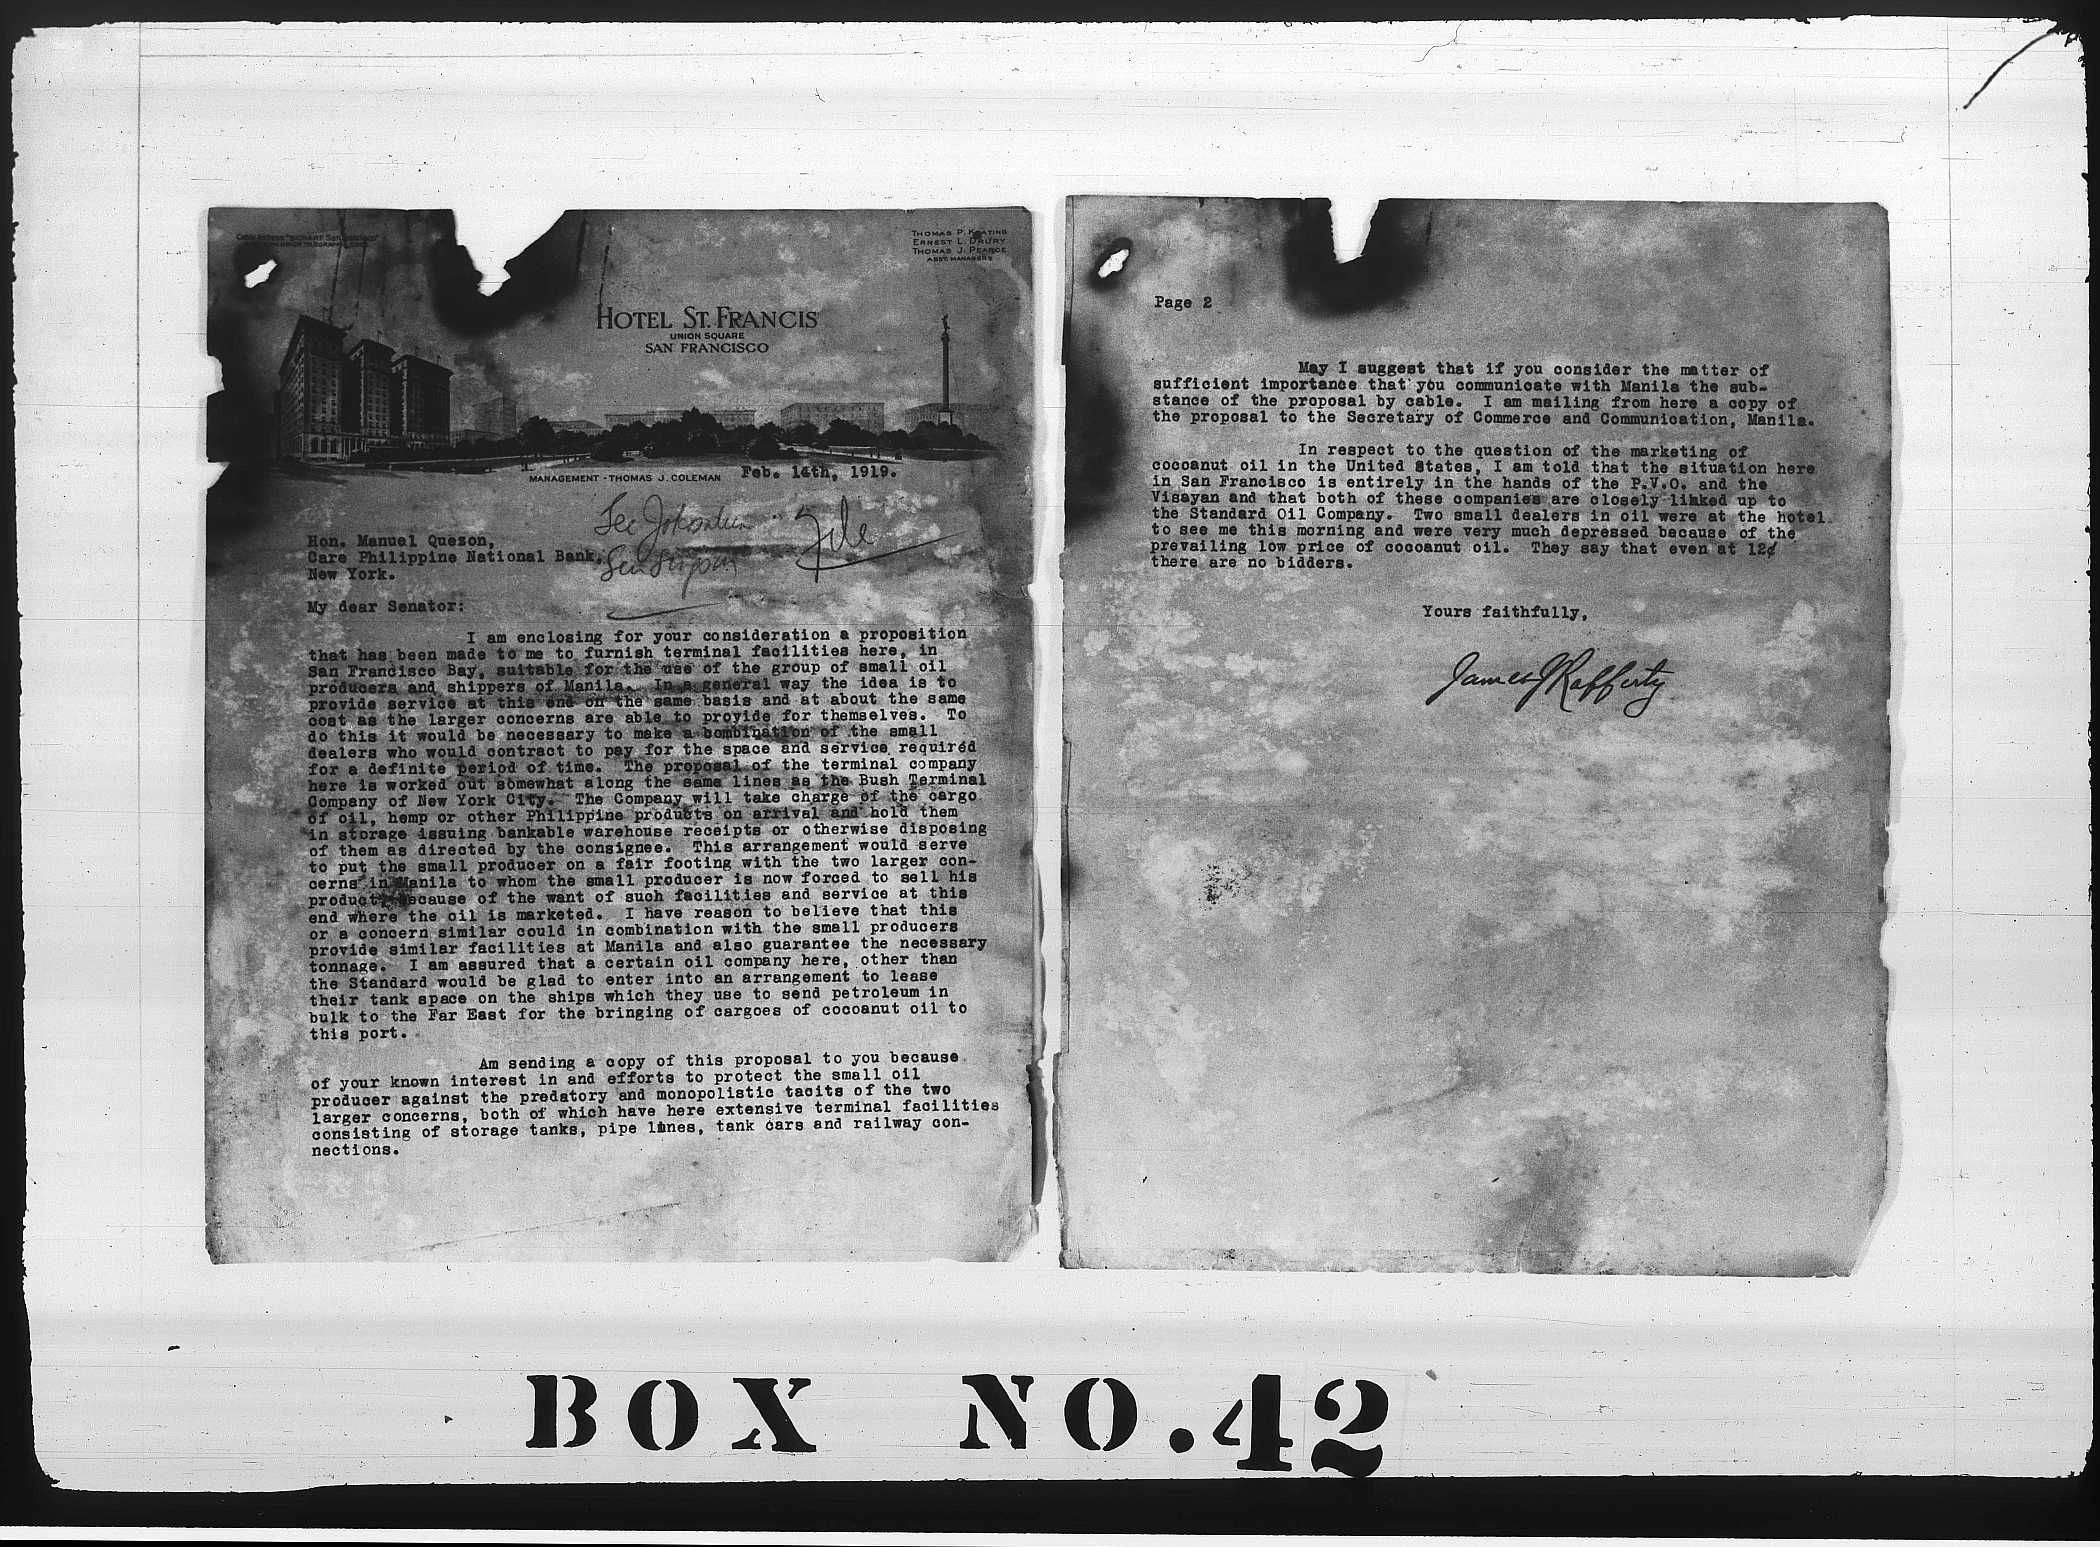 THOMAS P. KEATING
ERNEST L. DRURY
THOMAS J. PEARCE
ASST. MANAGERS
HOTEL ST. FRANCIS
UNION SQUARE
SAN FRANCISCO
MANAGEMENT - THOMAS J. COLEMAN
Feb. 14th, 1919.
See
File
Hon. Manuel Quezon,
Care Philippine National Bank,
New York.
My dear Senator:
I am enclosing for your consideration a proposition
that has been made to me to furnish terminal facilities here, in
San Francisco Bay, suitable for the use of the group of small oil
producers and shippers of Manila. In a general way the idea is to
provide service at this end on the same basis and at about the same
cost as the larger concerns are able to provide for themselves. To
do this it would be necessary to make a combination of the small
dealers who would contract to pay for the space and service required
for a definite period of time. The proposal of the terminal company
here is worked out somewhat along the same lines as the Bush Terminal
Company of New York City. The Company will take charge of the cargo
of oil, hemp or other Philippine products on arrival and hold them
in storage issuing bankable warehouse receipts or otherwise disposing
of them as directed by the consignee. This arrangement would serve
to put the small producer on a fair footing with the two larger con-
cerns in Manila to whom the small producer is now forced to sell his
product because of the want of such facilities and service at this
end where the oil is marketed. I have reason to believe that this
or a concern similar could in combination with the small producers
provide similar facilities at Manila and also guarantee the necessary
tonnage. I am assured that a certain oil company here, other than
the Standard would be glad to enter into an arrangement to lease
their tank space on the ships which they use to send petroleum in
bulk to the Far East for the bringing of cargoes of cocoanut oil to
this port.
Am sending a copy of this proposal to you because
of your known interest in and efforts to protect the small oil
producer against the predatory and monopolistic tacits of the two
larger concerns, both of which have here extensive terminal facilities
consisting of storage tanks, pipe lines, tank cars and railway con-
nections.
Page 2
May I suggest that if you consider the matter of
sufficient importance that you communicate with Manila the sub-
stance of the proposal by cable. I am mailing from here a copy of
the proposal to the Secretary of Commerce and Communication, Manila.
In respect to the question of the marketing of
cocoanut oil in the United States, I am told that the situation here
in San Francisco is entirely in the hands of the P.V.O. and the
Visayan and that both of these companies are closely linked up to
the Standard Oil Company. Two small dealers in oil were at the hotel
to see me this morning and were very much depressed because of the
prevailing low price of cocoanut oil. They say that even at 12¢
there are no bidders.
Yours faithfully,
James J Rafferty
BOX NO.42